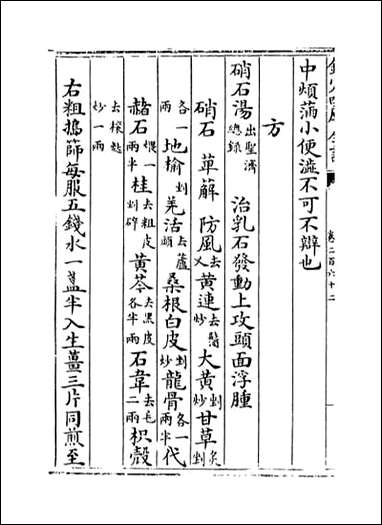 卷二百六十二
中煩滿小便澁不可不辯也
方
硝石湯出聖濟總録 治乳石發動上攻頭面浮腫
硝石 萆解 防風去叉 黄連去鬚炒 大黄剉炒 甘草炙剉
各一兩 地榆剉 羌活去蘆頭 桑根白皮剉炒 龍骨各一兩半 代
赭石煨一兩半 桂去粗皮剉碎 黄芩去黑皮各半兩 石韋去毛二兩 枳殻
去穰麩炒一兩
右粗搗篩每服五錢水一盞半入生薑三片同煎至